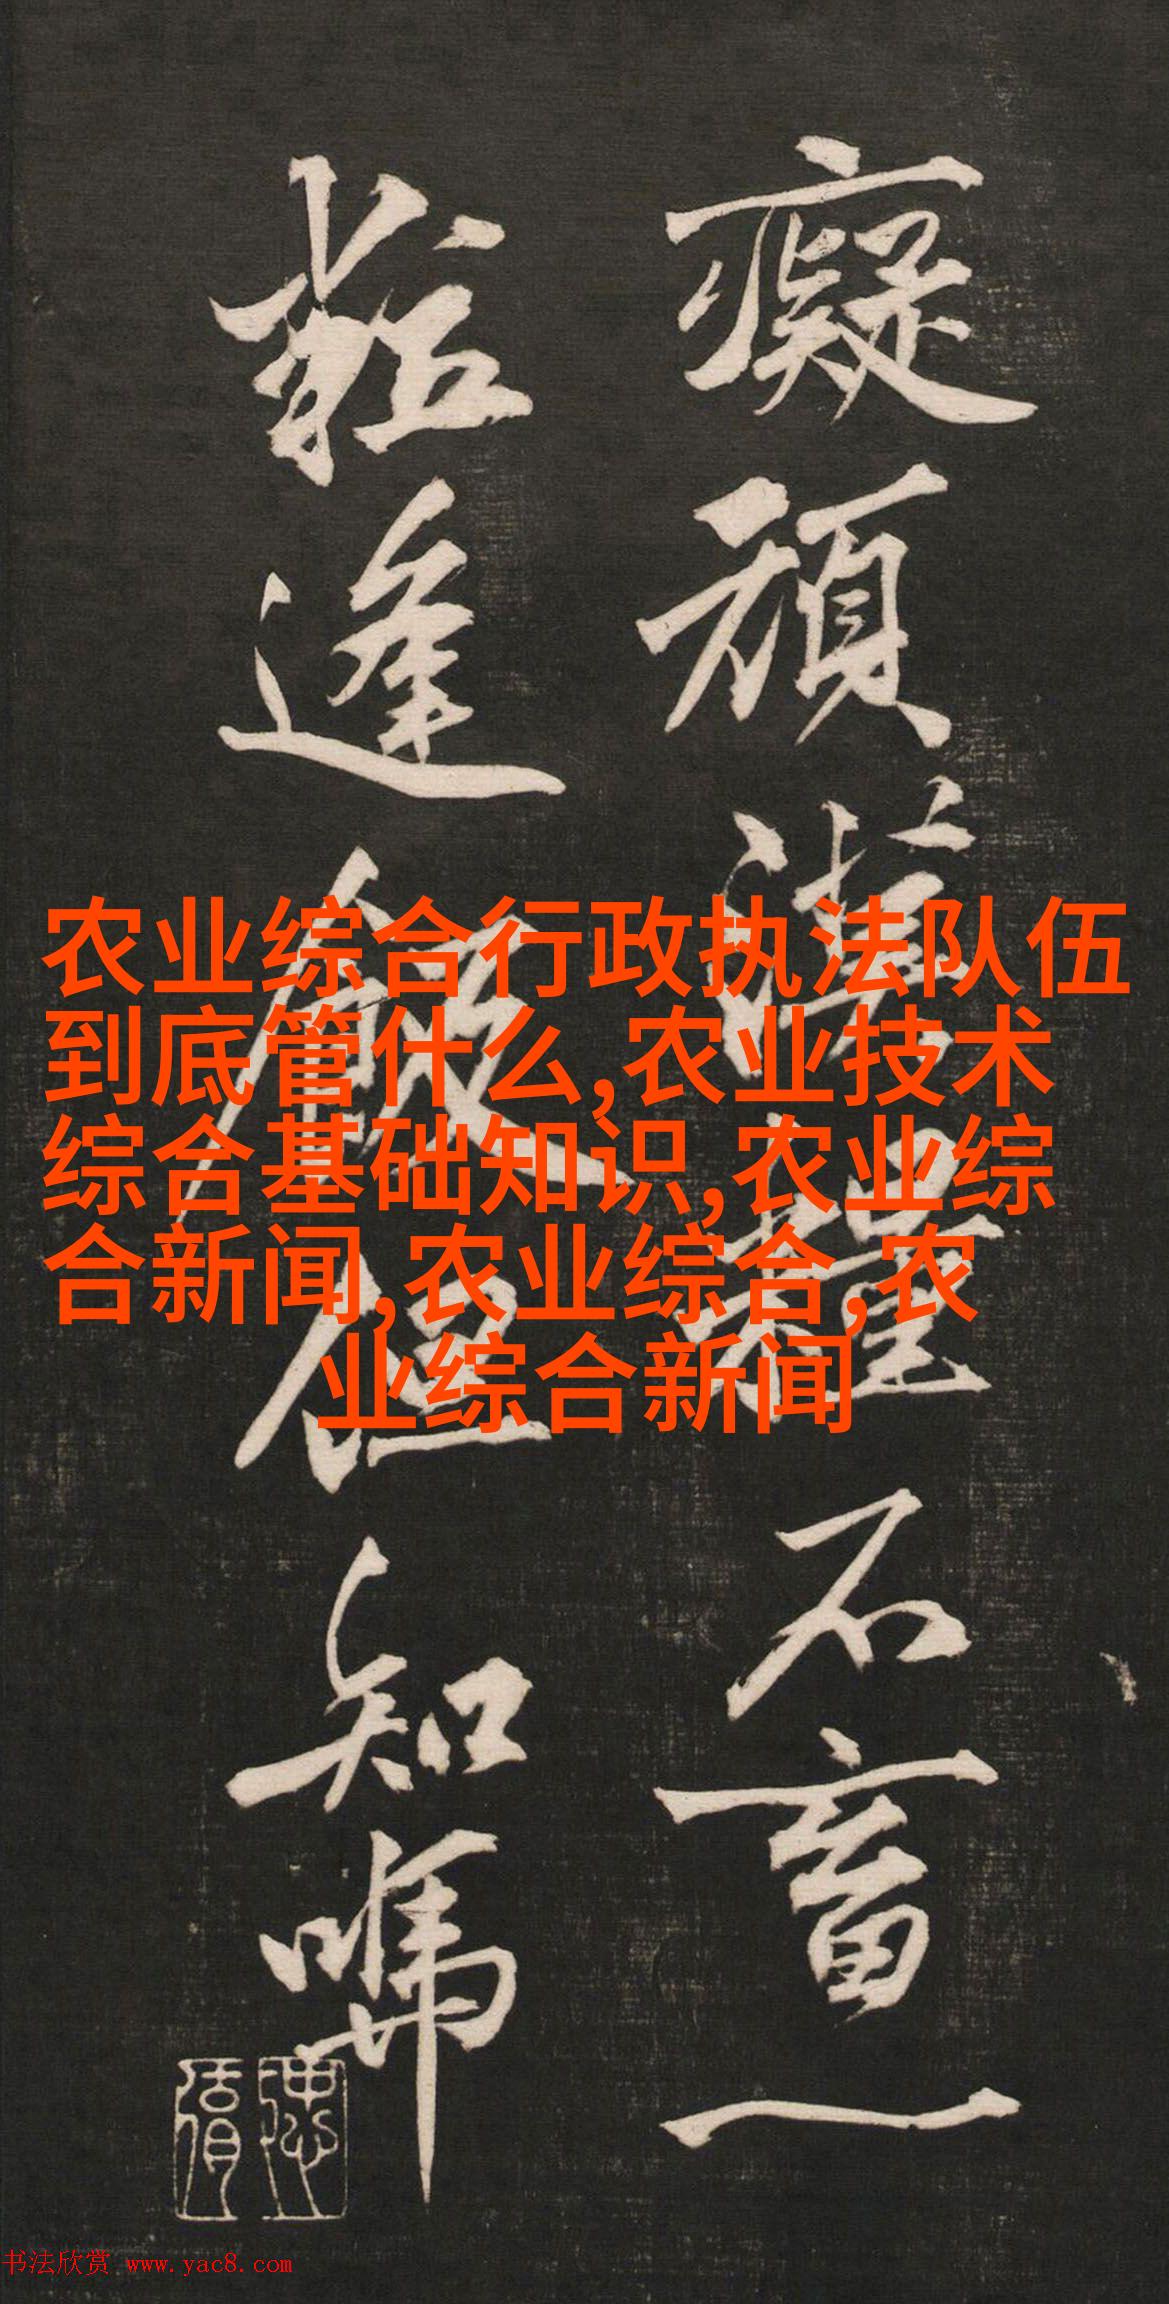 癡頑漢擔石畜一
農逢飯但知嗎
农业综合行政执法队伍
到底管什么,农业技术
综合基础知识,农业综
合新闻,农业综合,农
业综合新闻
书法欣赏 www.yac8.com